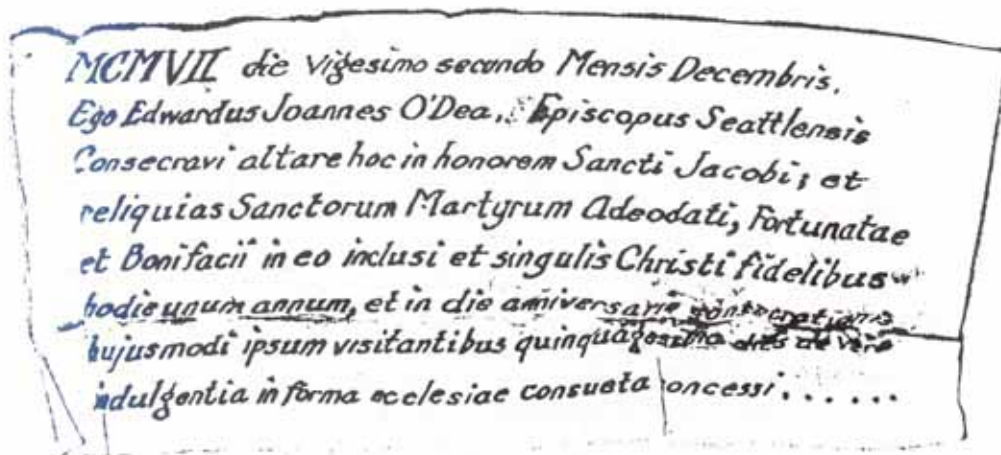 MCMVII die vigesimo secundo Mensis Decembris.
Ego Edwardus Joannes O'Dea, Episcopus Seattlensis
Consecravi altare hoc in honorem Sancti Jacobi; et
reliquias Sanctorum Martyrum Adeodati, Fortunatae
et Bonifacii in eo inclusi et singulis Christi fidelibus
hodie unum annum, et in die anniversarie consecrationis
hujusmodi ipsum visitantibus quinquagesima dies de vera
indulgentia in forma ecclesiae consueta concessi......